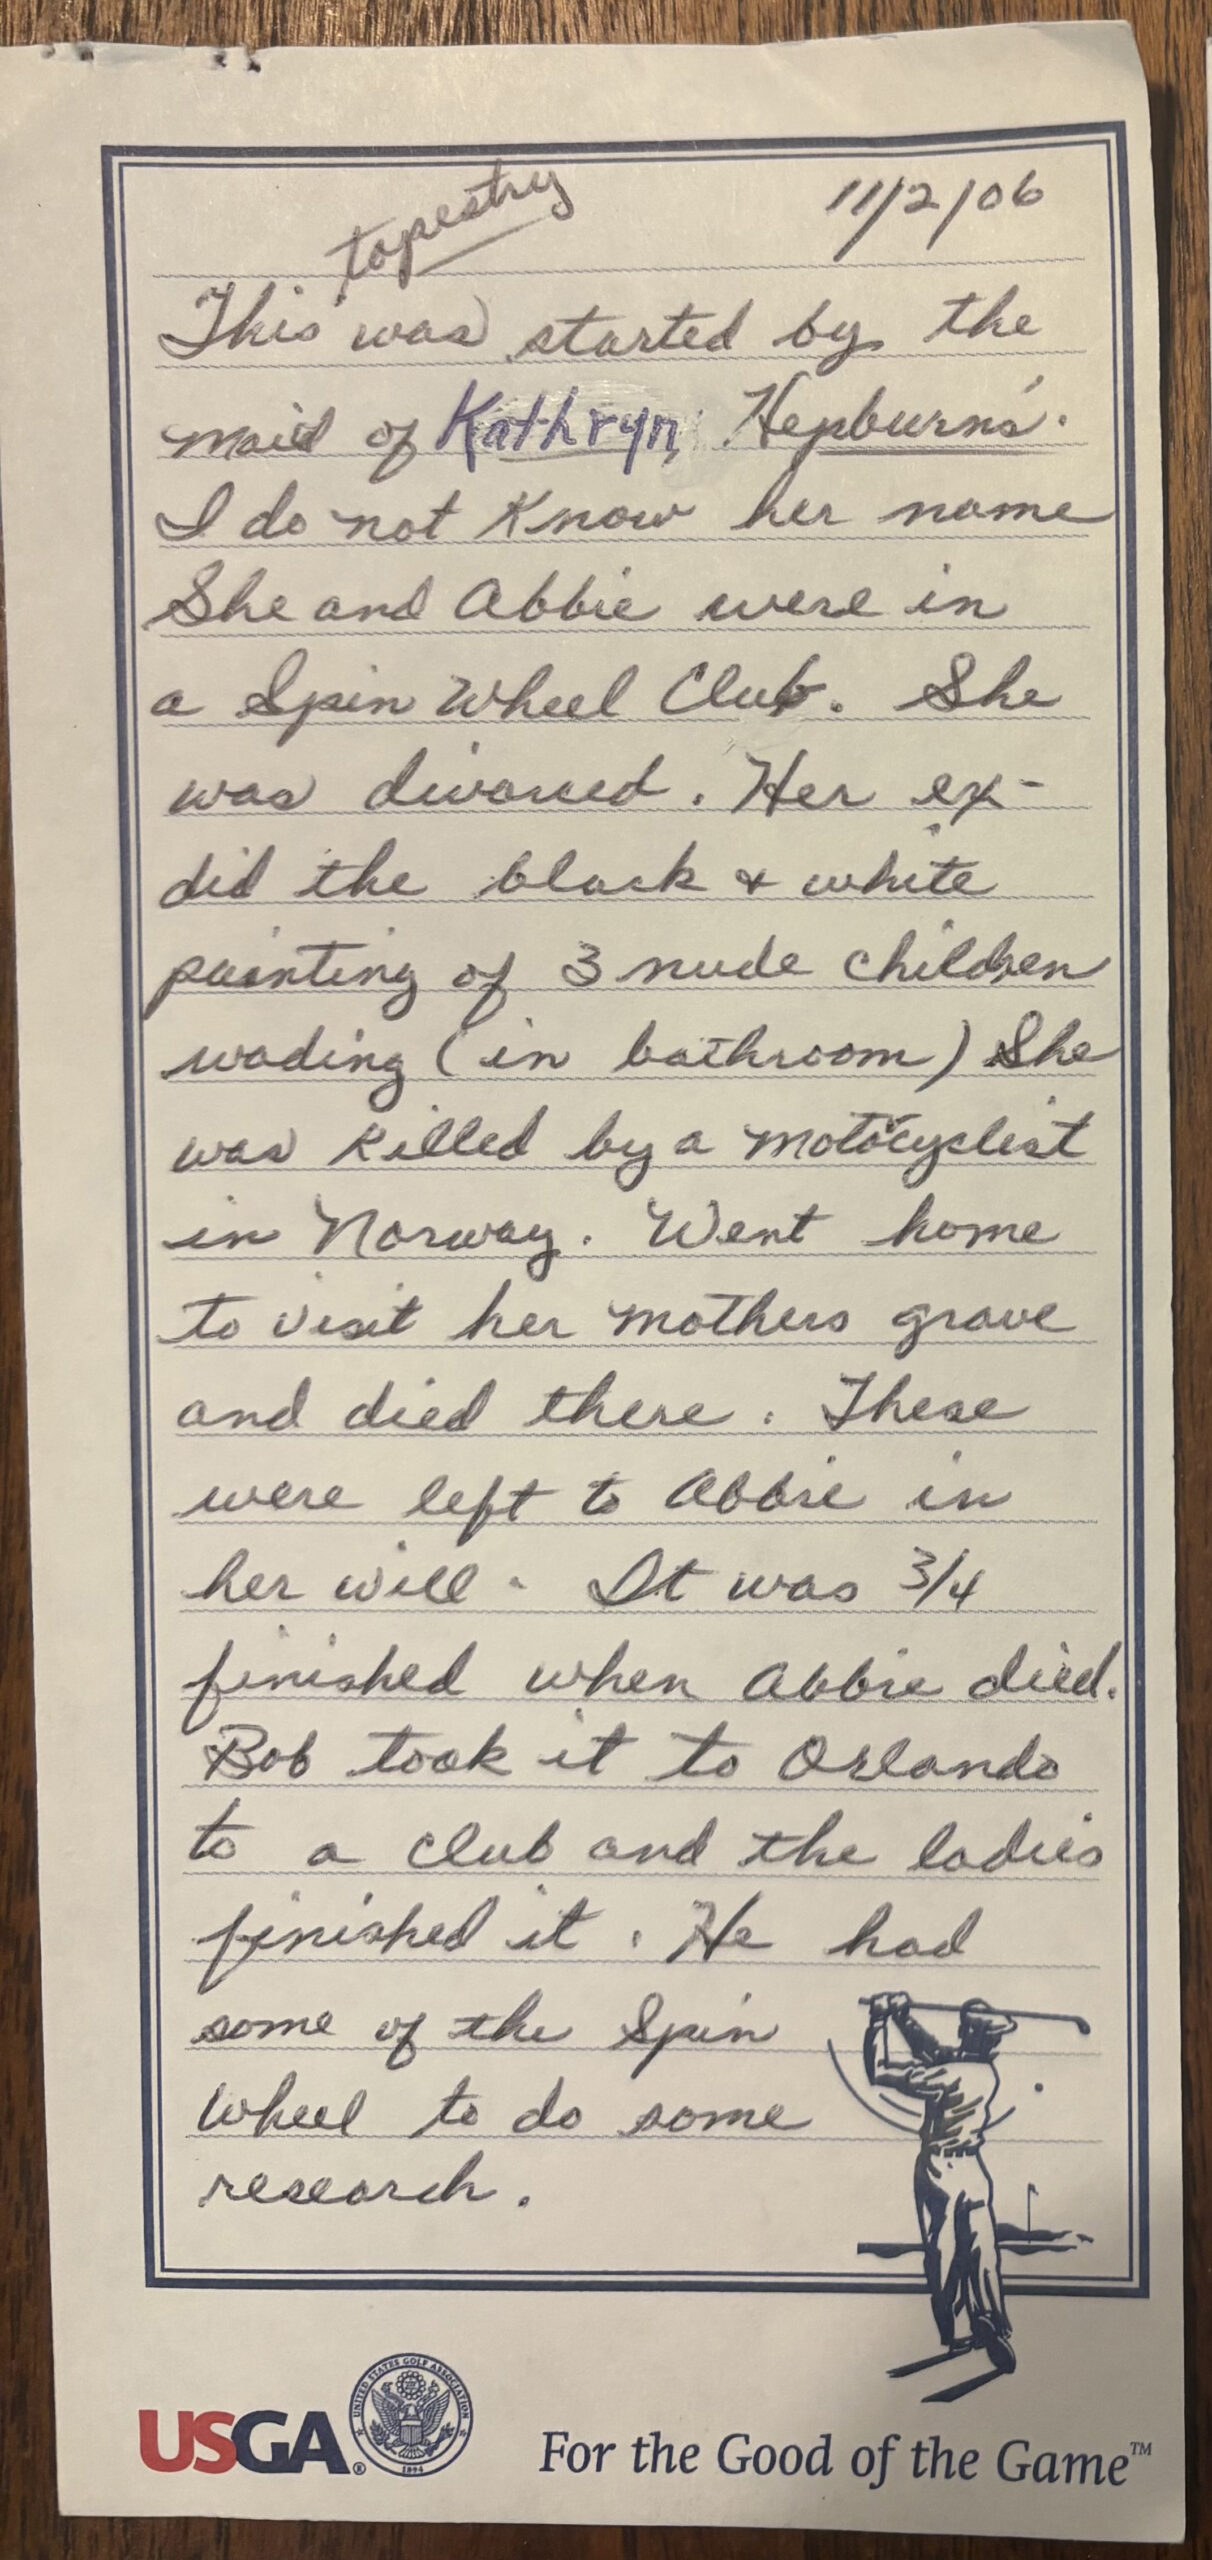 11/2/06
tapestry
This was started by the
maid of Kathryn Hepburn's.
I do not Know her name
She and Abbie were in
a Spin Wheel Club. She
was divorced. Her ex-
did the black & white
painting of 3 nude children
wading (in bathroom) She
was killed by a motocyclist
in Norway. Went home
to visit her mothers grave
and died there. These
were left to Abbie in
her will. It was 3/4
finished when Abbie died.
Bob took it to Orlando
to a club and the ladies
finished it. He had
some of the Spin
Wheel to do some
research.
USGA®
UNITED STATES GOLF ASSOCIATION
1894
For the Good of the Game™